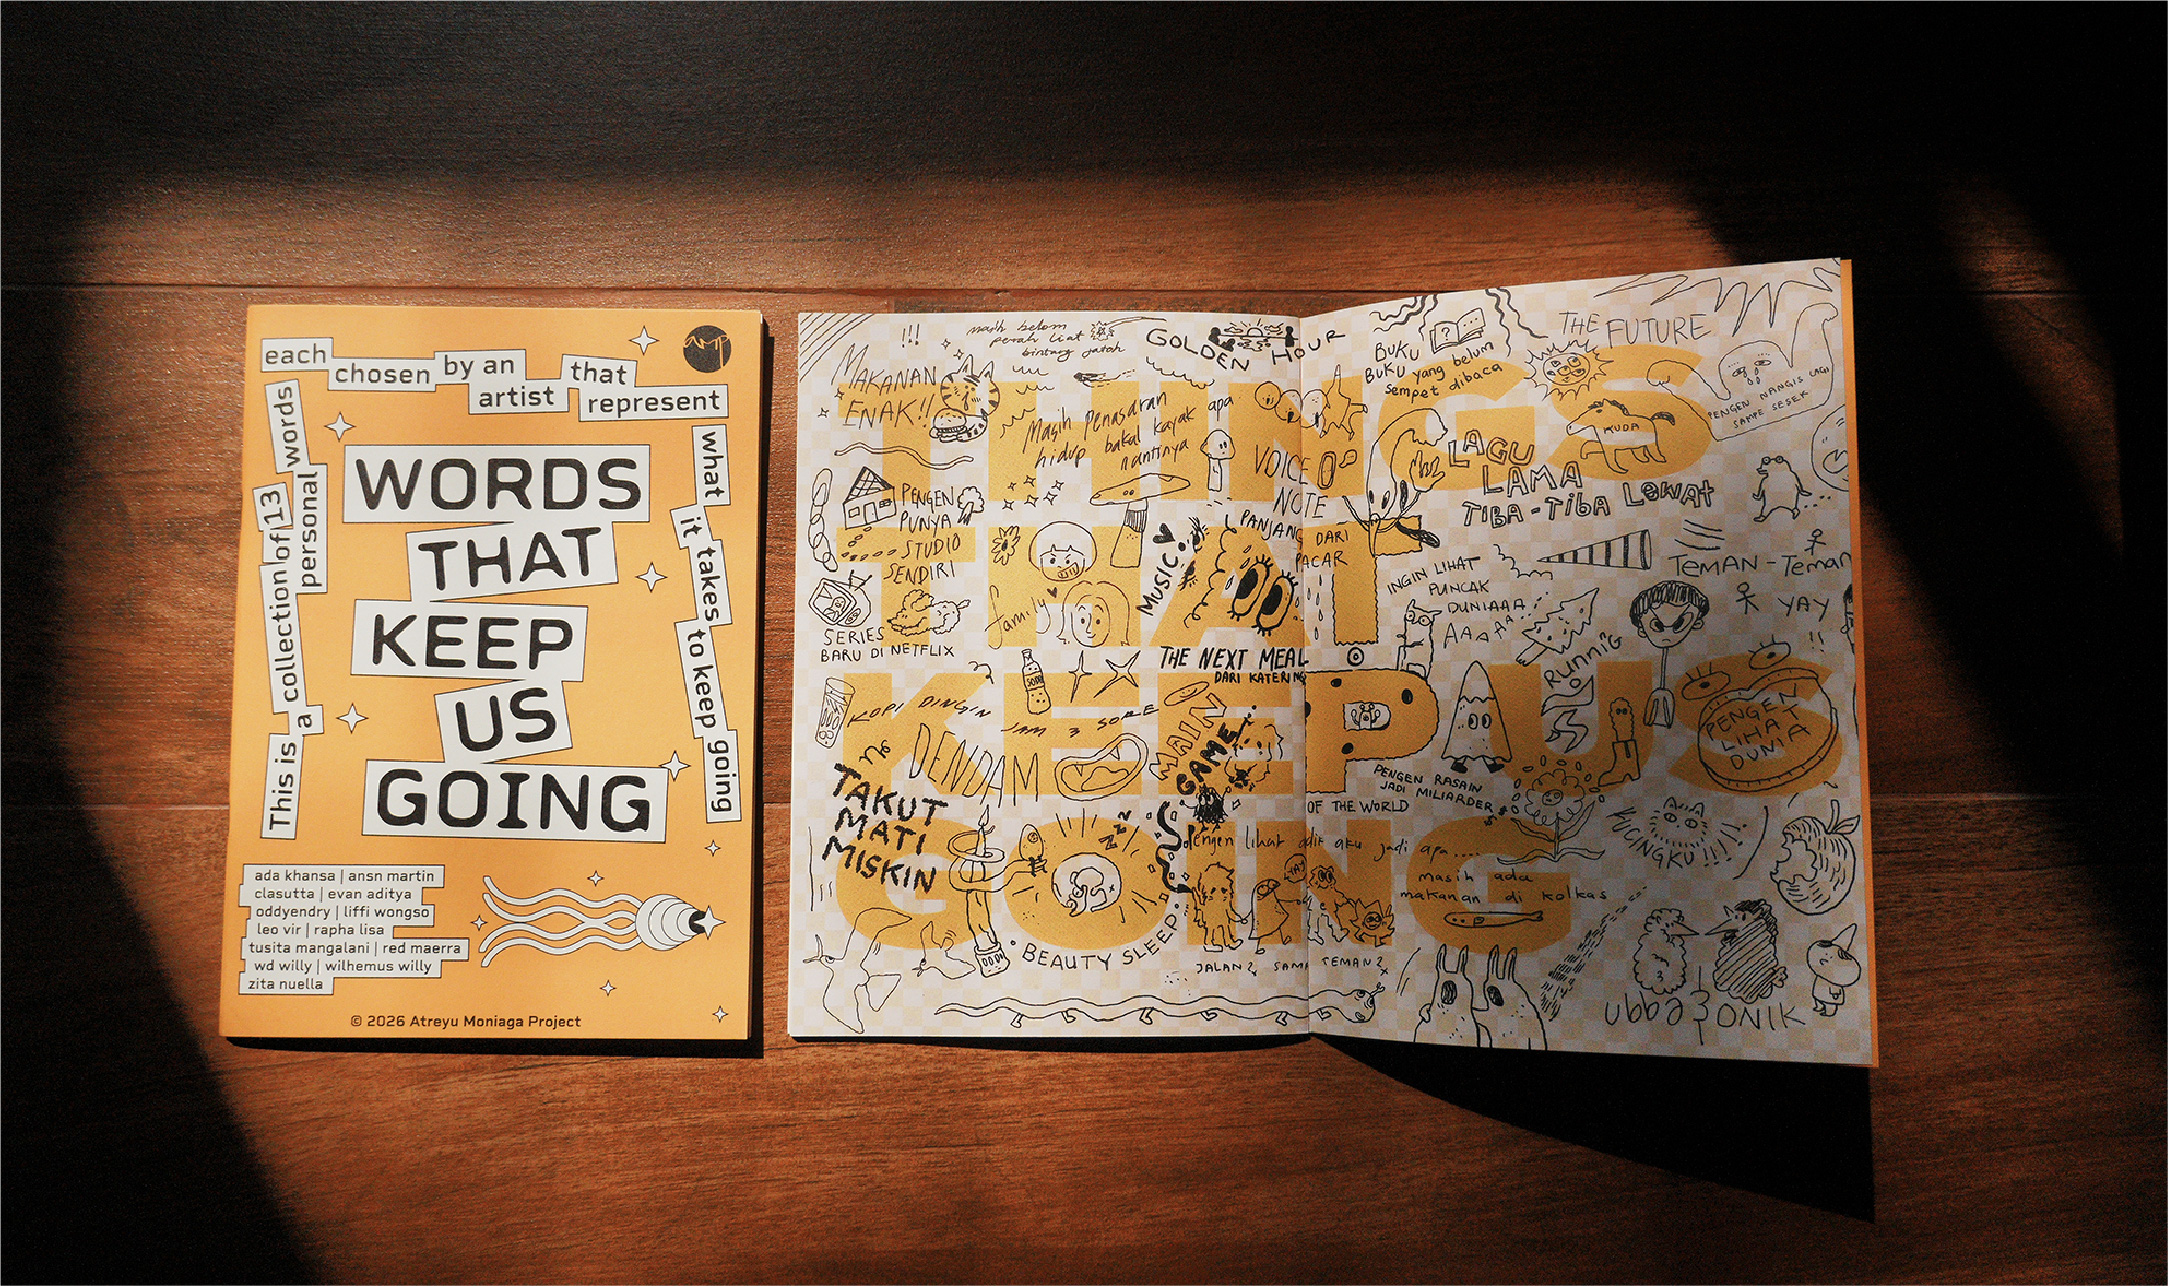 amp
This is a collection of 13 personal words
each chosen by an artist that represent
what it takes to keep going
WORDS
THAT
KEEP
US
GOING
ada khansa | ansn martin
clasutta | evan aditya
oddyendry | liffi wongso
leo vir | rapha lisa
tusita mangalani | red maerra
wd willy | wilhemus willy
zita nuella
© 2026 Atreyu Moniaga Project
THINGS
THAT
KEEP US
GOING
!!!
MAKANAN
ENAK!!
masih belom
pernah liat
bintang jatuh
GOLDEN HOUR
BUKU
BUKU yang belum
sempet dibaca
?
THE FUTURE
PENGEN NANGIS LAGI
SAMPE SESEK
Masih penasaran
hidup bakal kayak apa
nantinya
VOICE
NOTE
PANJANG DARI
PACAR
LAGU
LAMA
TIBA-TIBA LEWAT
KUDA
PENGEN
PUNYA
STUDIO
SENDIRI
MUSIC
family
INGIN LIHAT
PUNCAK
DUNIAAA
AAAAA
TEMAN-Teman
YAY
!!
SERIES
BARU DI NETFLIX
THE NEXT MEAL
DARI KATERING
SODA
RUNNIG
KOPI DINGIN JAM 3 SORE
MAIN
GAME
PENGEN
LIHAT
DUNIA
DENDAM
TAKUT
MATI
MISKIN
PENGEN RASAIN
JADI MILIARDER
$
$
OF THE WORLD
ZZZ
pengen lihat adik aku jadi apa....
masih ada
makanan di kolkas
KUCINGKU !!!!
YA?
BEAUTY SLEEP
JALAN2 SAMA TEMAN2
ubba & ONIK